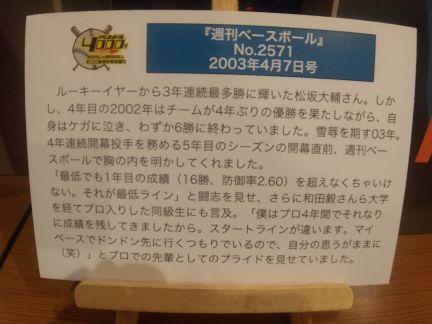 4000号
『週刊ベースボール』
No.2571
2003年4月7日号
ルーキーイヤーから3年連続最多勝に輝いた松坂大輔さん。しか
し、4年目の2002年はチームが4年ぶりの優勝を果たしながら、自
身はケガに泣き、わずか6勝に終わっていました。雪辱を期す03年。
4年連続開幕投手を務める5年目のシーズンの開幕直前、週刊ベー
スボールで胸の内を明かしてくれました。
「最低でも1年目の成績（16勝、防御率2.60）を超えなくちゃいけ
ない。それが最低ライン」と闘志を見せ、さらに和田毅さんら大学
を経てプロ入りした同級生にも言及。「僕はプロ4年間でそれなり
に成績を残してきましたから。スタートラインが違います。マイ
ペースでドンドン先に行くつもりでいるので、自分の思うがままに
（笑）」とプロでの先輩としてのプライドを見せていました。